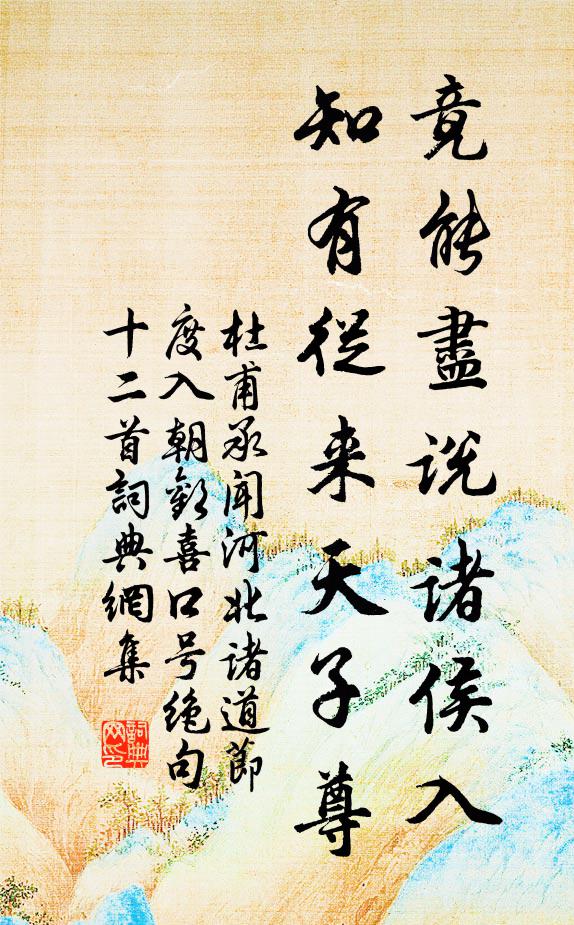 竟能盡説諸侯入
知有從来天子尊
杜甫承闻河北诸道節
度入朝歡喜口号绝句
十二首詞典網集
詞典
网印